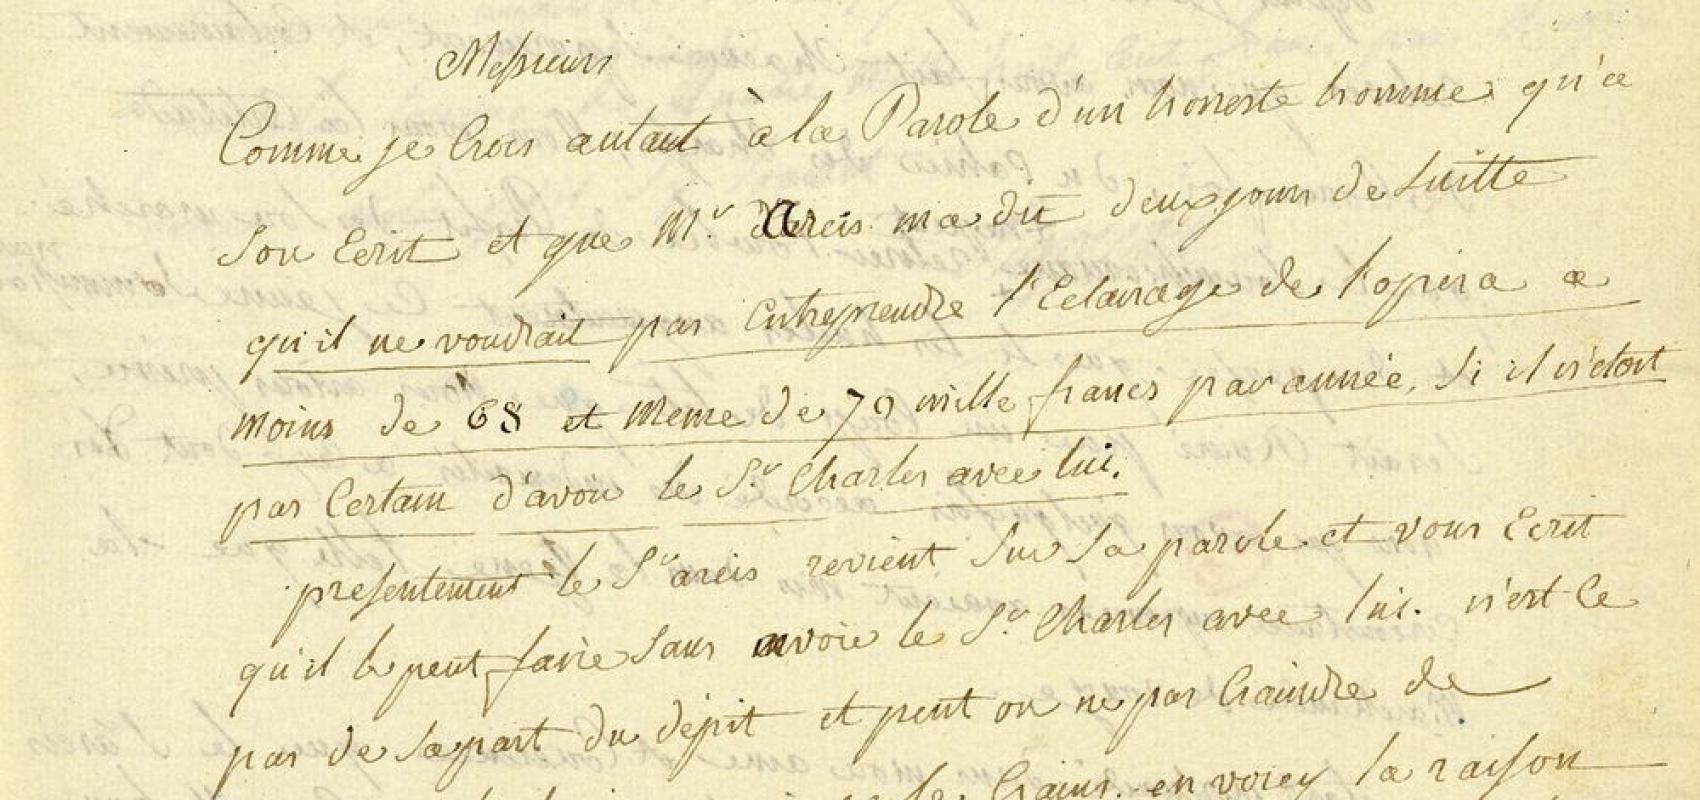 Messieurs
Comme je Crois autant à la Parole d'un honneste homme qu'a
son Ecrit et que Mr. Areis ma dit deux jours de suitte
qu'il ne voudrait pas Entreprendre l'Eclairage de l'opera a
moins de 68 et meme de 70 mille francs par année, si il n'etoit
par Certain d'avoir le Sr. Charles avec lui.
presentement le Sr areis revient sur sa parole et vous Ecrit
qu'il le peut faire sans avoir le Sr. Charles avec lui. n'est Ce
pas de sa part du dépit et peut on ne pas Craindre de
le Crains. en voicy la raison